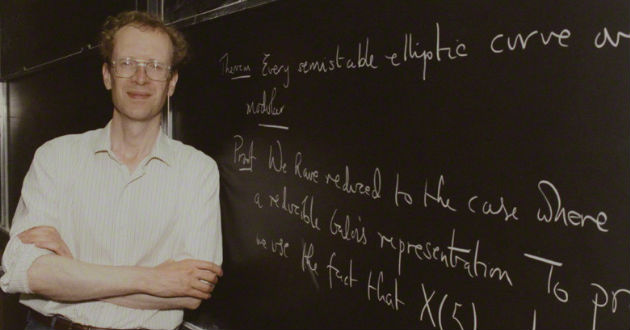 Theorem Every semistable elliptic curve ov
modular
Proof We have reduced to the case where
a reducible Galois representation To pr
we use the fact that X(5)